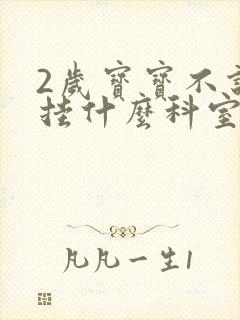 2歲寶寶不
挂什麼科室
凡凡一生1